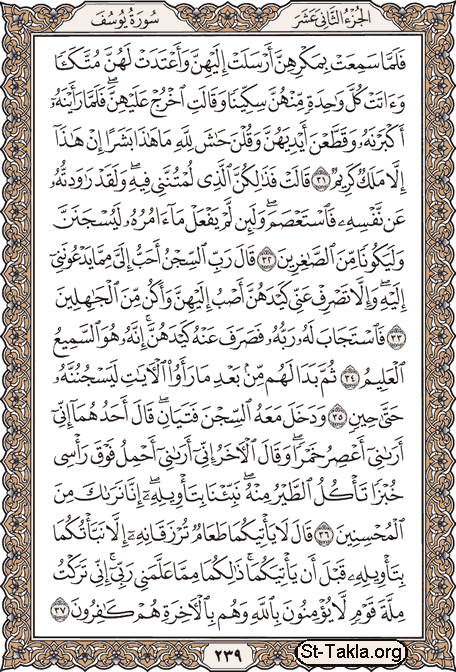 الجزء الثاني عشر
سورة يوسف
فَلَمَّا سَمِعَتْ بِمَكْرِهِنَّ أَرْسَلَتْ إِلَيْهِنَّ وَأَعْتَدَتْ لَهُنَّ مُتَّكَـًٔا
وَءَاتَتْ كُلَّ وَٰحِدَةٍ مِّنْهُنَّ سِكِّينًا وَقَالَتِ ٱخْرُجْ عَلَيْهِنَّ ۖ فَلَمَّا رَأَيْنَهُۥٓ
أَكْبَرْنَهُۥ وَقَطَّعْنَ أَيْدِيَهُنَّ وَقُلْنَ حَٰشَ لِلَّهِ مَا هَٰذَا بَشَرًا إِنْ هَٰذَآ
إِلَّا مَلَكٌ كَرِيمٌ ٣١ قَالَتْ فَذَٰلِكُنَّ ٱلَّذِى لُمْتُنَّنِى فِيهِ ۖ وَلَقَدْ رَٰوَدتُّهُۥ
عَن نَّفْسِهِۦ فَٱسْتَعْصَمَ ۖ وَلَئِن لَّمْ يَفْعَلْ مَآ ءَامُرُهُۥ لَيُسْجَنَنَّ
وَلَيَكُونًا مِّنَ ٱلصَّٰغِرِينَ ٣٢ قَالَ رَبِّ ٱلسِّجْنُ أَحَبُّ إِلَىَّ مِمَّا يَدْعُونَنِىٓ
إِلَيْهِ ۖ وَإِلَّا تَصْرِفْ عَنِّى كَيْدَهُنَّ أَصْبُ إِلَيْهِنَّ وَأَكُن مِّنَ ٱلْجَٰهِلِينَ
٣٣ فَٱسْتَجَابَ لَهُۥ رَبُّهُۥ فَصَرَفَ عَنْهُ كَيْدَهُنَّ ۚ إِنَّهُۥ هُوَ ٱلسَّمِيعُ
ٱلْعَلِيمُ ٣٤ ثُمَّ بَدَا لَهُم مِّنۢ بَعْدِ مَا رَأَوُا۟ ٱلْـَٔايَٰتِ لَيَسْجُنُنَّهُۥ
حَتَّىٰ حِينٍ ٣٥ وَدَخَلَ مَعَهُ ٱلسِّجْنَ فَتَيَانِ ۖ قَالَ أَحَدُهُمَآ إِنِّىٓ
أَرَىٰنِىٓ أَعْصِرُ خَمْرًا ۖ وَقَالَ ٱلْـَٔاخَرُ إِنِّىٓ أَرَىٰنِىٓ أَحْمِلُ فَوْقَ رَأْسِى
خُبْزًا تَأْكُلُ ٱلطَّيْرُ مِنْهُ ۖ نَبِّئْنَا بِتَأْوِيلِهِۦٓ ۖ إِنَّا نَرَىٰكَ مِنَ
ٱلْمُحْسِنِينَ ٣٦ قَالَ لَا يَأْتِيكُمَا طَعَامٌ تُرْزَقَانِهِۦٓ إِلَّا نَبَّأْتُكُمَا
بِتَأْوِيلِهِۦ قَبْلَ أَن يَأْتِيَكُمَا ۚ ذَٰلِكُمَا مِمَّا عَلَّمَنِى رَبِّىٓ ۚ إِنِّى تَرَكْتُ
مِلَّةَ قَوْمٍ لَّا يُؤْمِنُونَ بِٱللَّهِ وَهُم بِٱلْـَٔاخِرَةِ هُمْ كَٰفِرُونَ ٣٧
٢٣٩
St-Takla.org